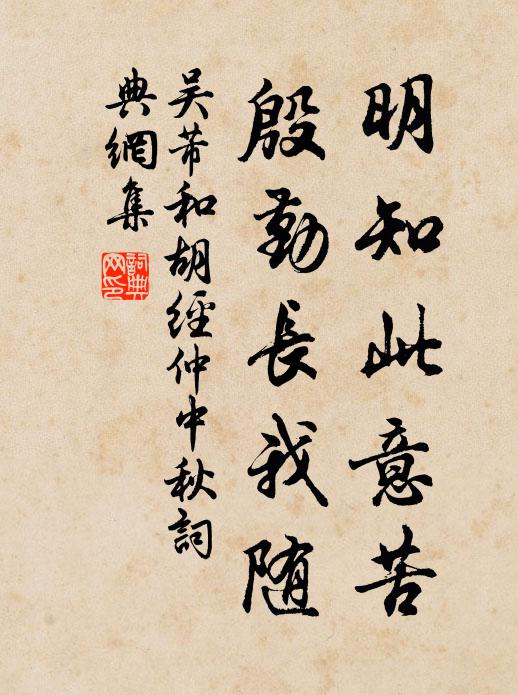 明知此意苦
殷勤長我随
吴芾和胡經仲中秋詞
典網集
詞典网印